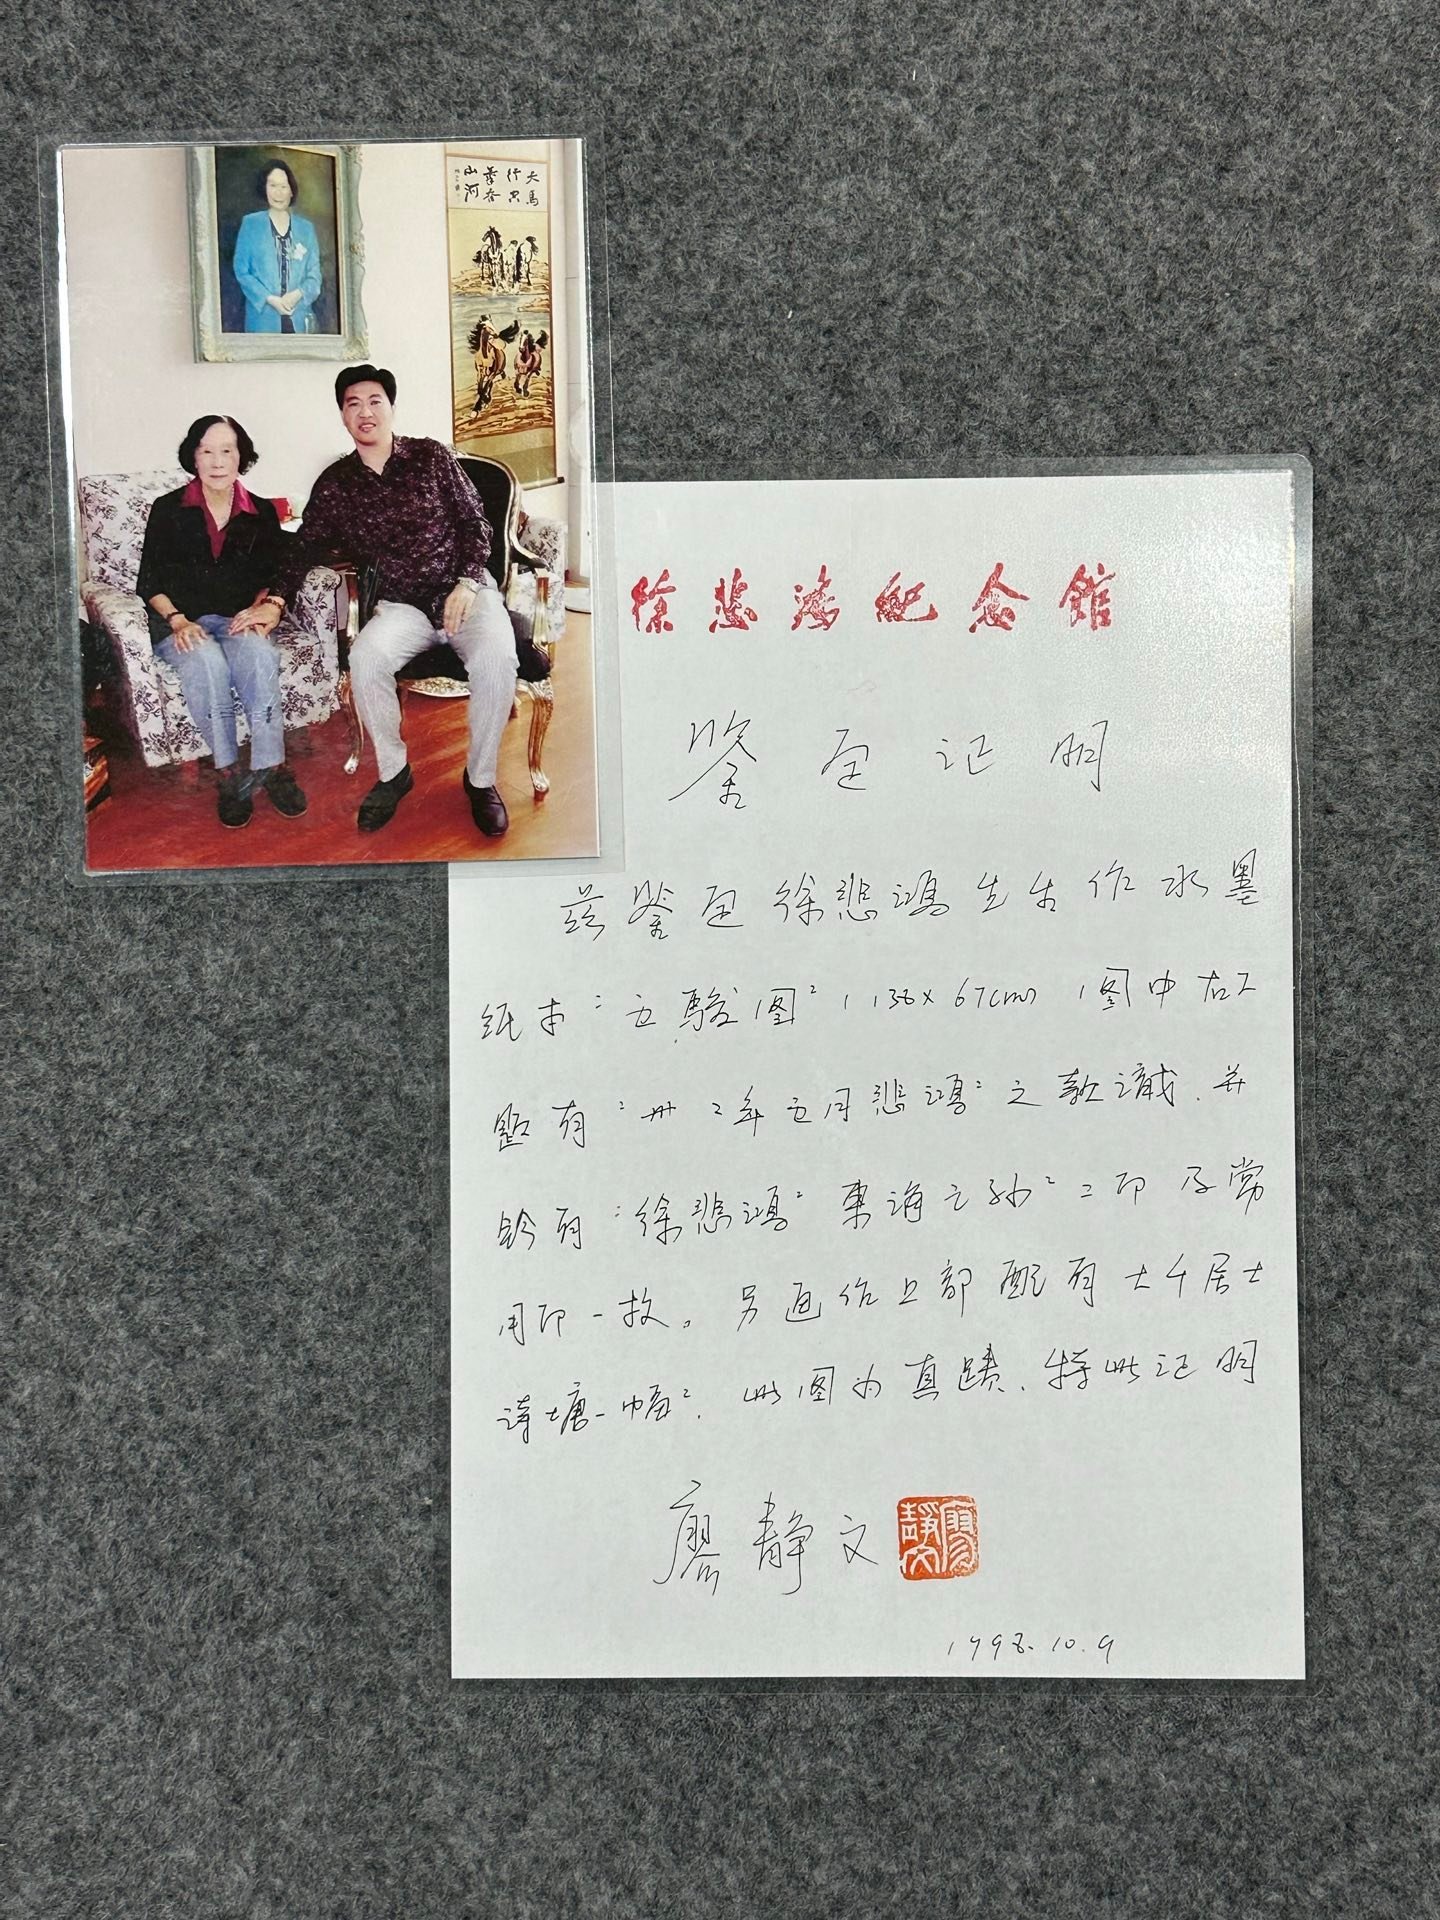 天马
行空
山河
徐悲鸿纪念馆
鉴定证明
兹鉴定徐悲鸿先生作水墨
纸本"五駿图"(138×67cm)图中右下
题有"卅二年五月悲鸿"之款識.并
鈐有"徐悲鴻""東海之孙"二印及常
用印一枚。另画作上部配有大千居士
诗塘一幅".此图为真蹟.特此证明
廖静文
廖靜文
1998.10.9